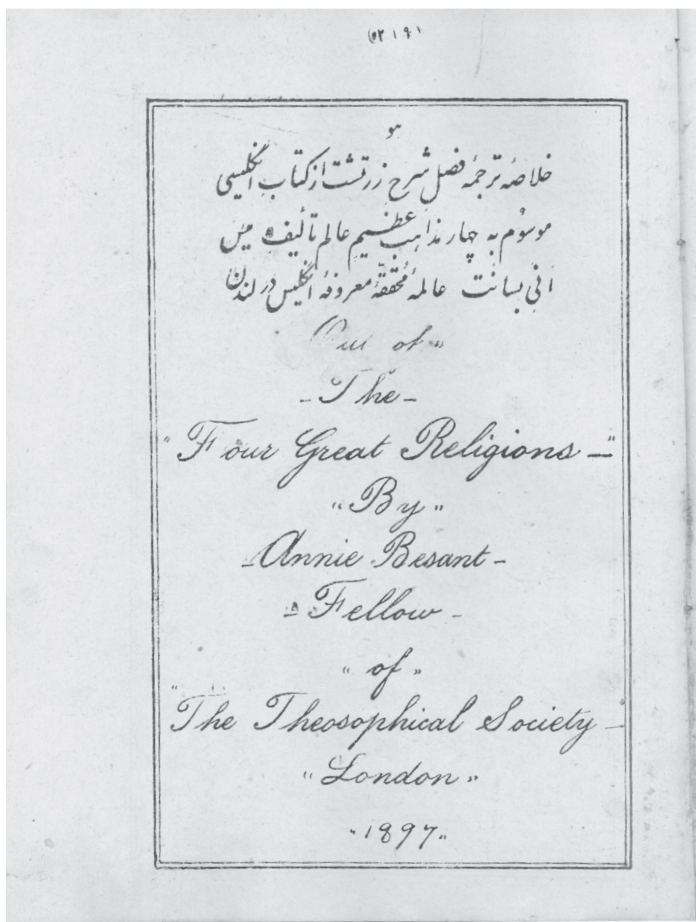 هو
خلاصهٔ ترجمهٔ فصل شرح زرتشت از کتاب انگلیسی
موسوم به چهار مذاهب عظیم عالم تألیف میس
انی بسانت عالمهٔ محققهٔ معروفهٔ انگلیس در لندن
Out of "
- The -
" Four Great Religions - "
" By "
- Annie Besant -
- Fellow -
" of "
" The Theosophical Society -
" London "
" 1897 "